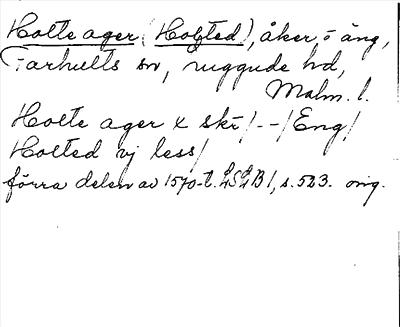 Holte ager (Holsted), åker o äng,
Farhults sn, Luggude hd,
Malm. l.
Holte ager x skr / - - / Eng /
Holted vj less /
förra delen av 1570-t. LSLB 1, s. 523. orig.